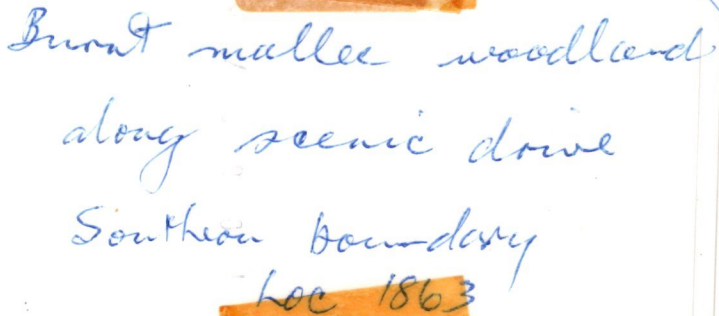 Burnt mallee woodland
along scenic drive
Southern boundary
Loc 1863